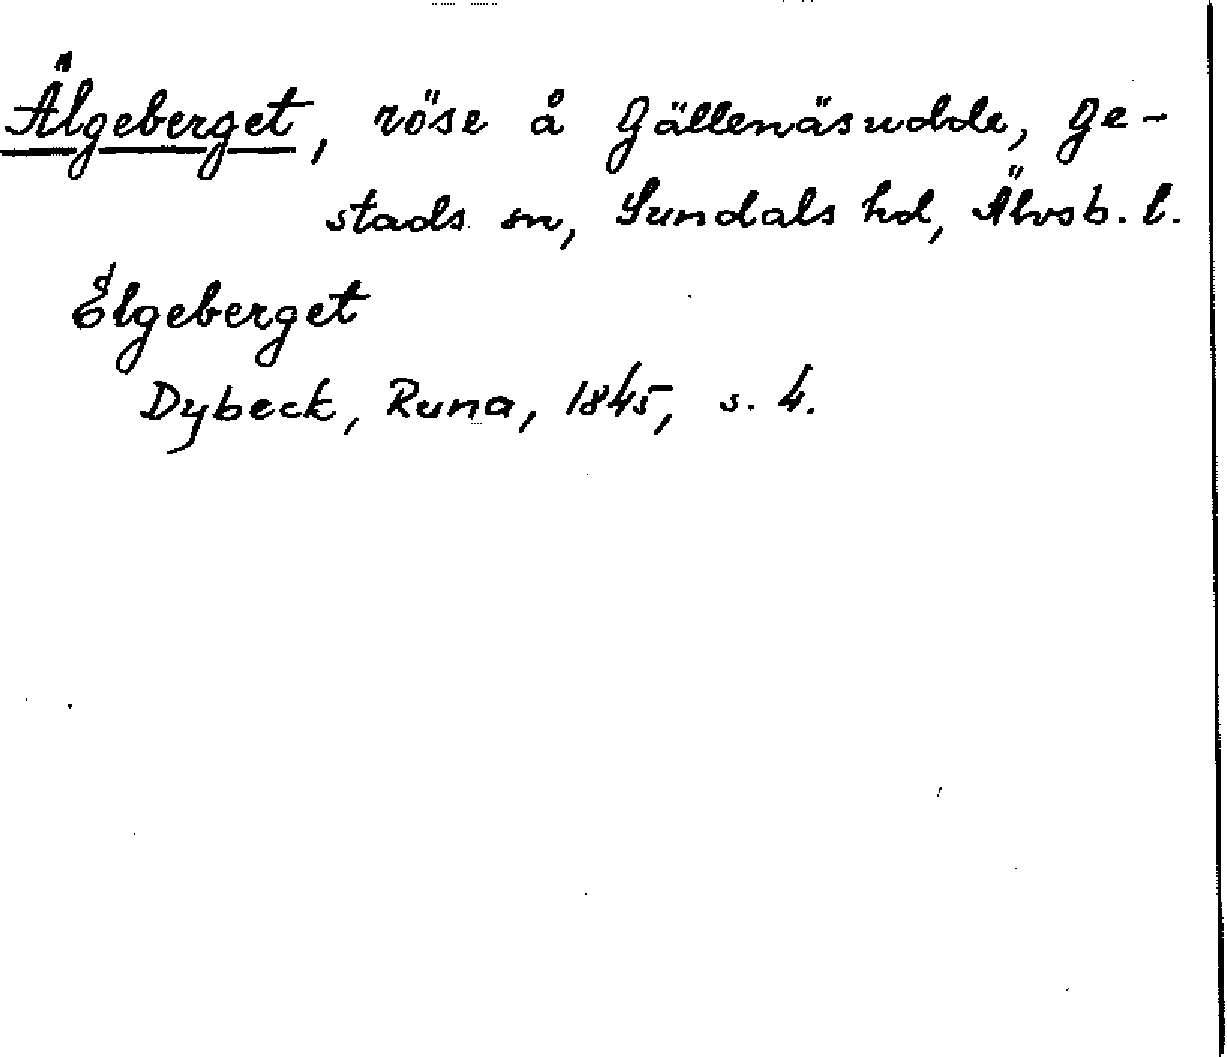 Älgeberget, röse å Gällenäsudde, Ge-
stads sn, Sundals hd, Älvsb. l.
Elgeberget
Dybeck, Runa, 1845, s. 4.